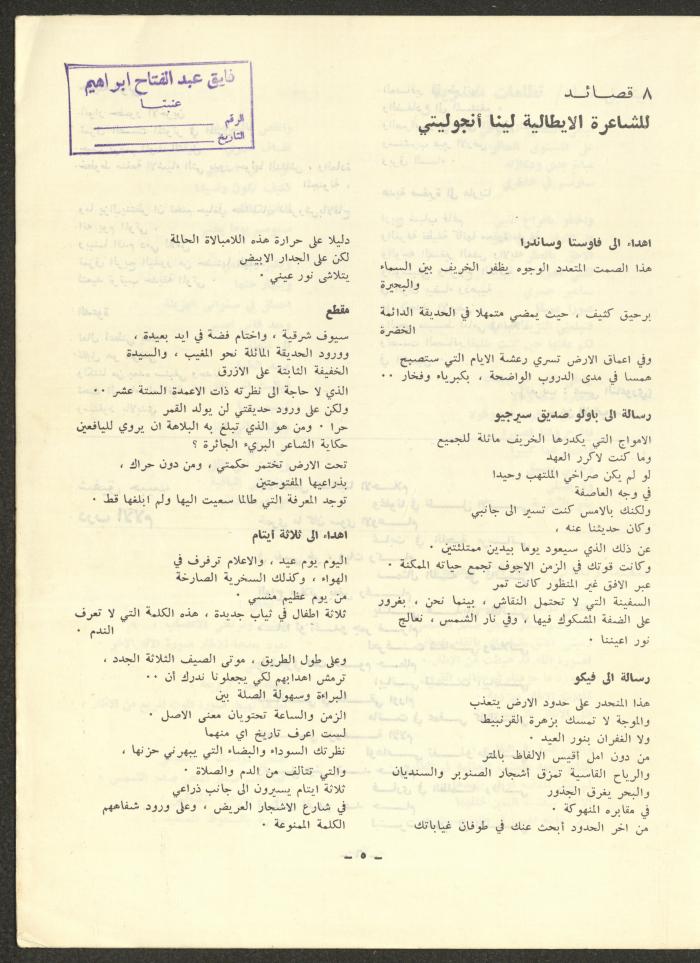 ٨ قصائد
للشاعرة الايطالية لينا أنجوليتي
فايق عبد الفتاح ابراهيم
عنبتا
الرقم
التاريخ
اهداء الى فاوستا وساندرا
هذا الصمت المتعدد الوجوه يظفر الخريف بين السماء
والبحيرة
برحيق كثيف ، حيث يمضي متمهلا في الحديقة الدائمة
الخضرة
وفي اعماق الارض تسري رعشة الايام التي ستصبح
همسا في مدى الدروب الواضحة ، بكبرياء وفخار ٠٠
رسالة الى باولو صديق سيرجيو
الامواج التي يكدرها الخريف ماثلة للجميع
وما كنت لاكرر العهد
لو لم يكن صراخي الملتهب وحيدا
في وجه العاصفة
ولكنك بالامس كنت تسير الى جانبي
وكان حديثنا عنه ،
عن ذلك الذي سيعود يوما بيدين ممتلئتين ٠
وكانت قوتك في الزمن الاجوف تجمع حياته الممكنة ٠
عبر الافق غير المنظور كانت تمر
السفينة التي لا تحتمل النقاش ، بينما نحن ، بغرور
على الضفة المشكوك فيها ، وفي نار الشمس ، نعالج
نور اعيننا ٠
رسالة الى فيكو
هذا المنحدر على حدود الارض يتعذب
والموجة لا تمسك بزهرة القرنبيط
ولا الغفران بنور العيد ٠
من دون امل أقيس الالفاظ بالمتر
والرياح القاسية تمزق أشجار الصنوبر والسنديان
والبحر يغرق الجذور
في مقابره المنهوكة ٠
من اخر الحدود أبحث عنك في طوفان غياباتك
دليلا على حرارة هذه اللامبالاة الحالمة
لكن على الجدار الابيض
يتلاشى نور عيني ٠
مقطع
سيوف شرقية ، واختام فضة في ايد بعيدة ،
وورود الحديقة المائلة نحو المغيب ، والسيدة
الخفيفة الثابتة على الازرق
الذي لا حاجة الى نظرته ذات الاعمدة الستة عشر ٠٠
ولكن على ورود حديقتي لن يولد القمر
حرا ٠ ومن هو الذي تبلغ به البلاهة ان يروي لليافعين
حكاية الشاعر البريء الجائرة ؟
تحت الارض تختمر حكمتي ، ومن دون حراك ،
بذراعيها المفتوحتين
توجد المعرفة التي طالما سعيت اليها ولم ابلغها قط ٠
اهداء الى ثلاثة أيتام
اليوم يوم عيد ، والاعلام ترفرف في
الهواء ، وكذلك السخرية الصارخة
من يوم عظيم منسي ٠
ثلاثة اطفال في ثياب جديدة ، هذه الكلمة التي لا تعرف
الندم ٠
وعلى طول الطريق ، موتى الصيف الثلاثة الجدد ،
ترمش اهدابهم لكي يجعلونا ندرك أن ٠٠
البراءة وسهولة الصلة بين
الزمن والساعة تحتويان معنى الاصل ٠
لست اعرف تاريخ اي منهما
نظرتك السوداء والبيضاء التي يبهرني حزنها ،
والتي تتألف من الدم والصلاة ٠
ثلاثة ايتام يسيرون الى جانب ذراعي
في شارع الاشجار العريض ، وعلى ورود شفاههم
الكلمة الممنوعة ٠
– ٥ –